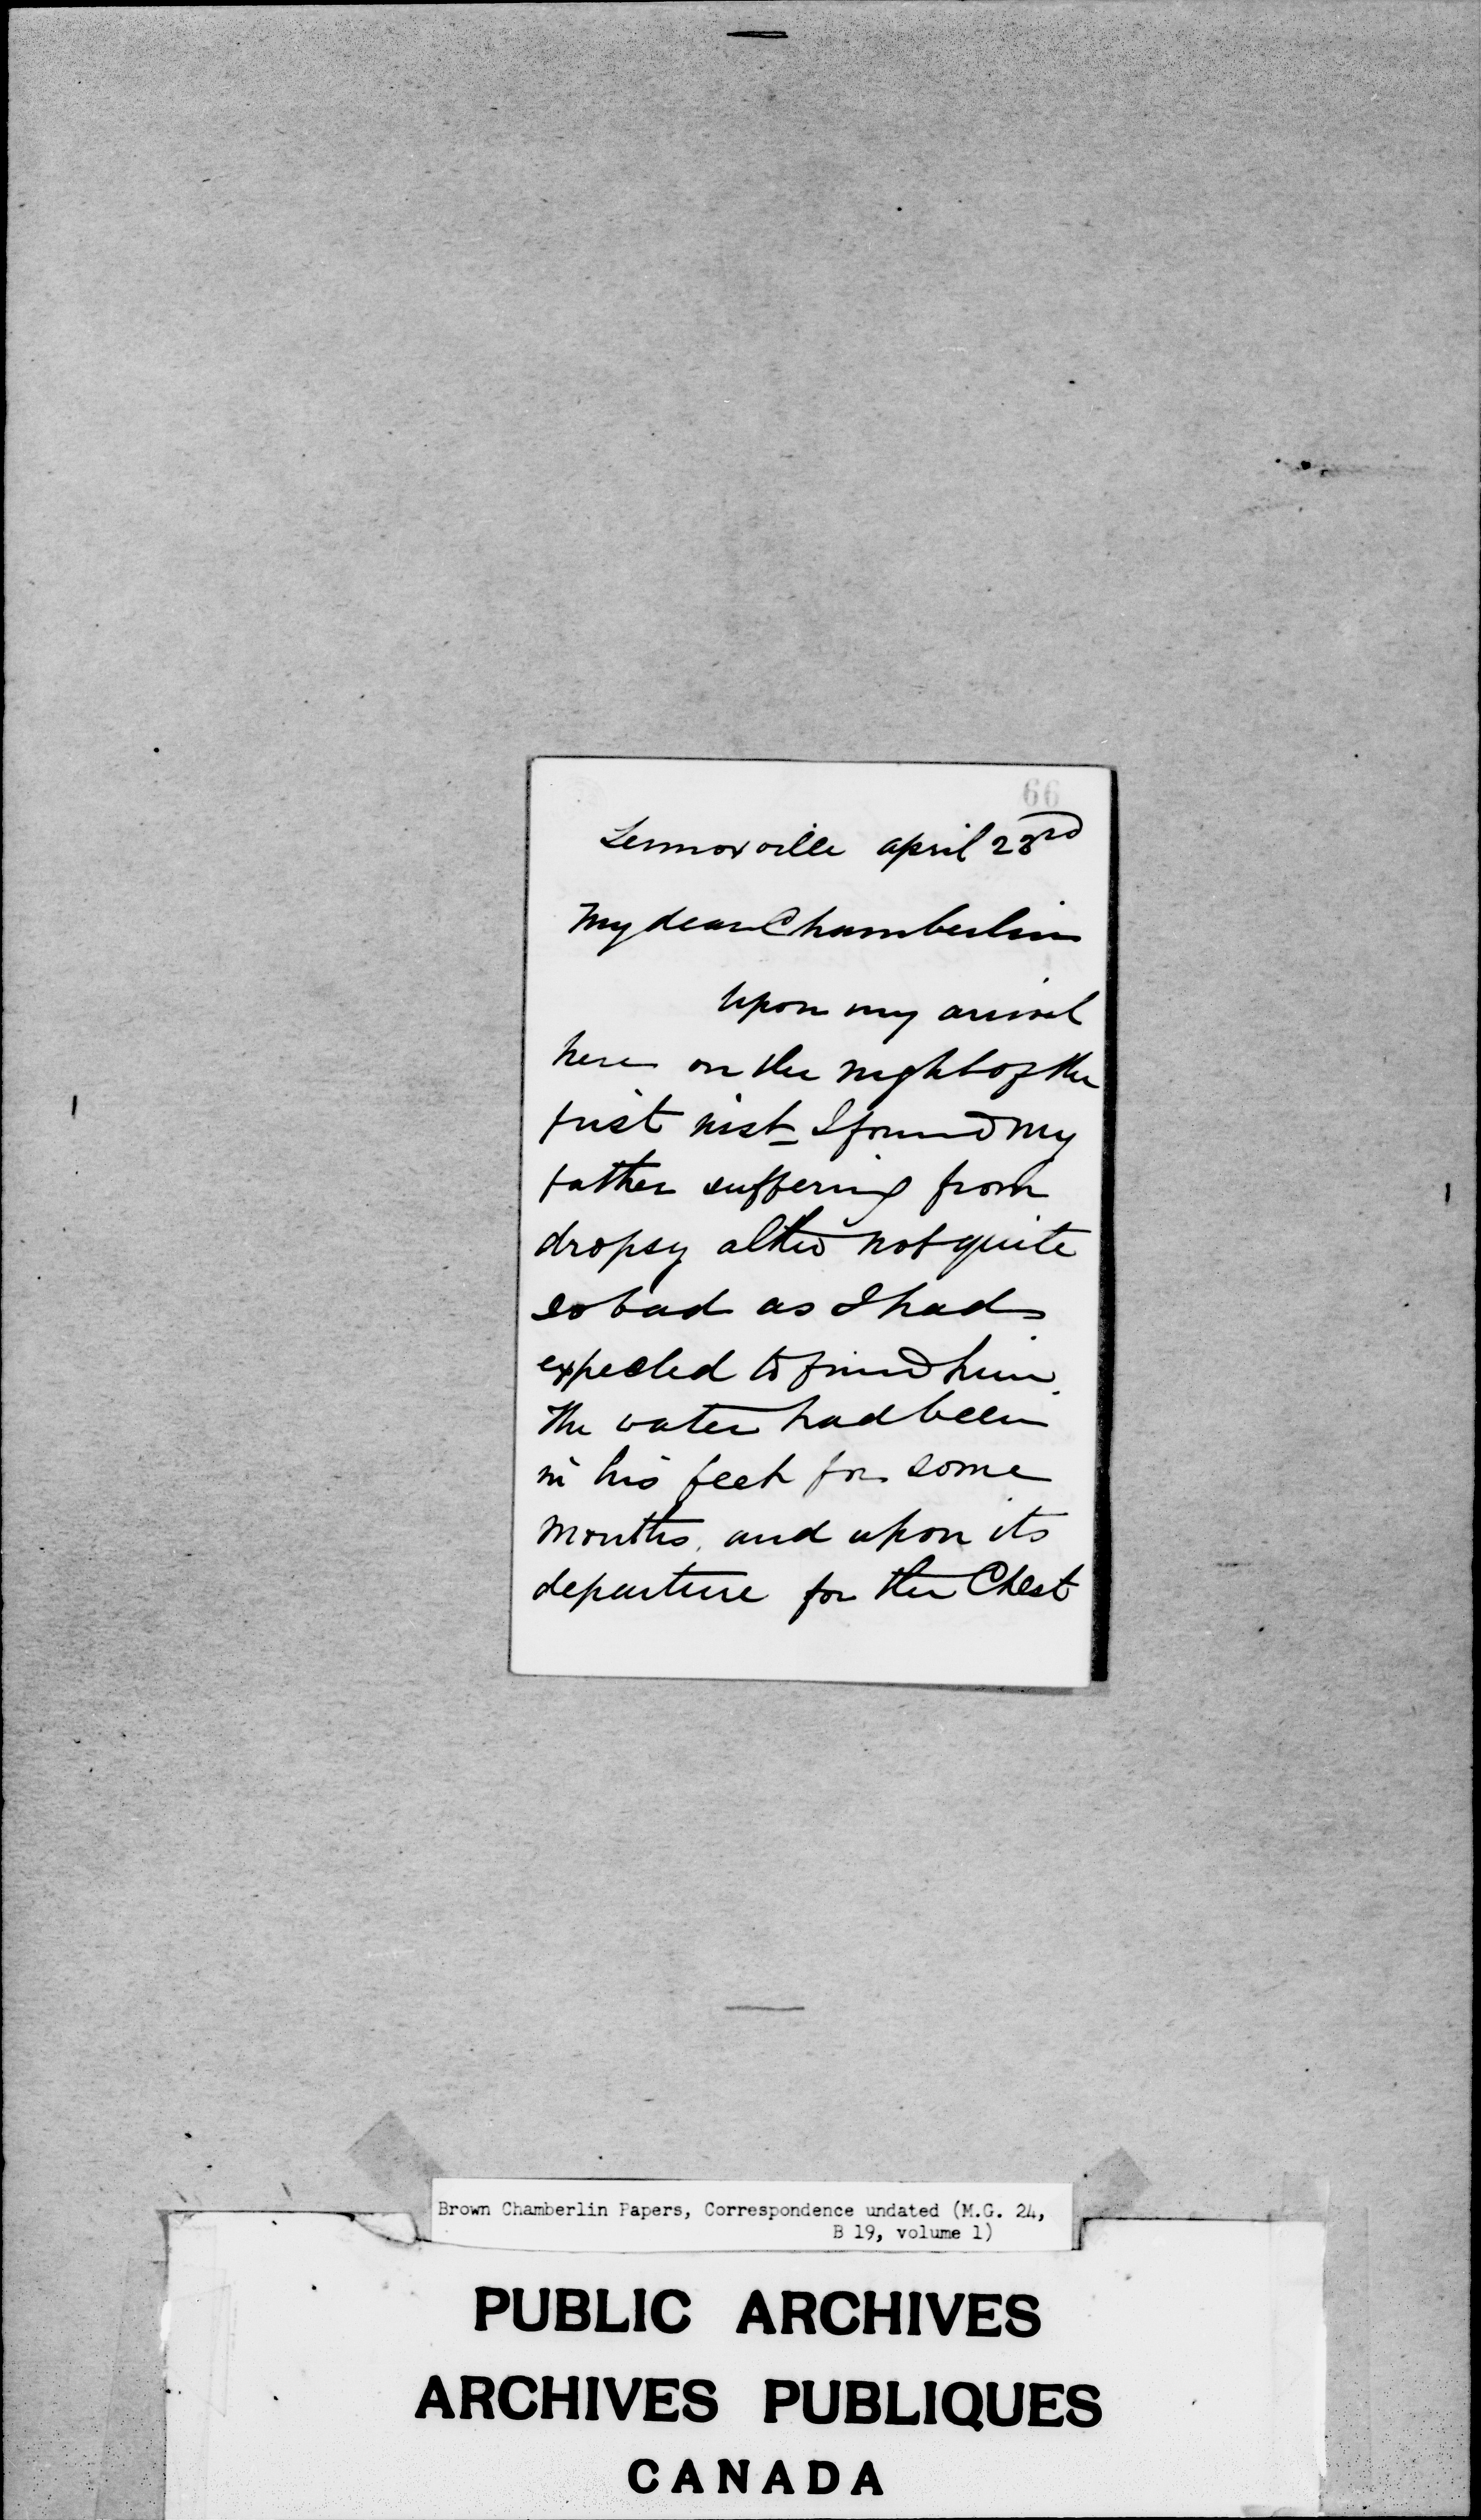 66
Lennoxville april 23rd
My dear Chamberlin
Upon my arrival
here on the night of the
first inst I found my
father suffering from
dropsy altho not quite
so bad as I had
expected to find him.
The water had been
in his feet for some
months, and upon its
departure for the Chest
Brown Chamberlin Papers, Correspondence undated (M.G. 24,
B 19, volume 1)
PUBLIC ARCHIVES
ARCHIVES PUBLIQUES
CANADA